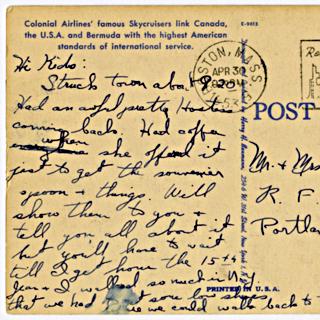 Colonial Airlines' famous Skycruisers link Canada,
the U.S.A. and Bermuda with the highest American
standards of international service.
E-9813
Hi Kids:
Struck town about 8:20
Had an awful pretty Hostess
coming back. Had coffee
when she offered it
just to get the souvenier
spoon & things. Will
show them to you &
tell you all about it
but you'll have to wait
till I get home the 15th
Jean & I walked so much in N.Y.
that we had to get some low shoes
so we could walk back to
BOSTON, MASS.
APR 30
POST
Mr. & Mrs
R. F.
Portla
PRINTED IN U.S.A.